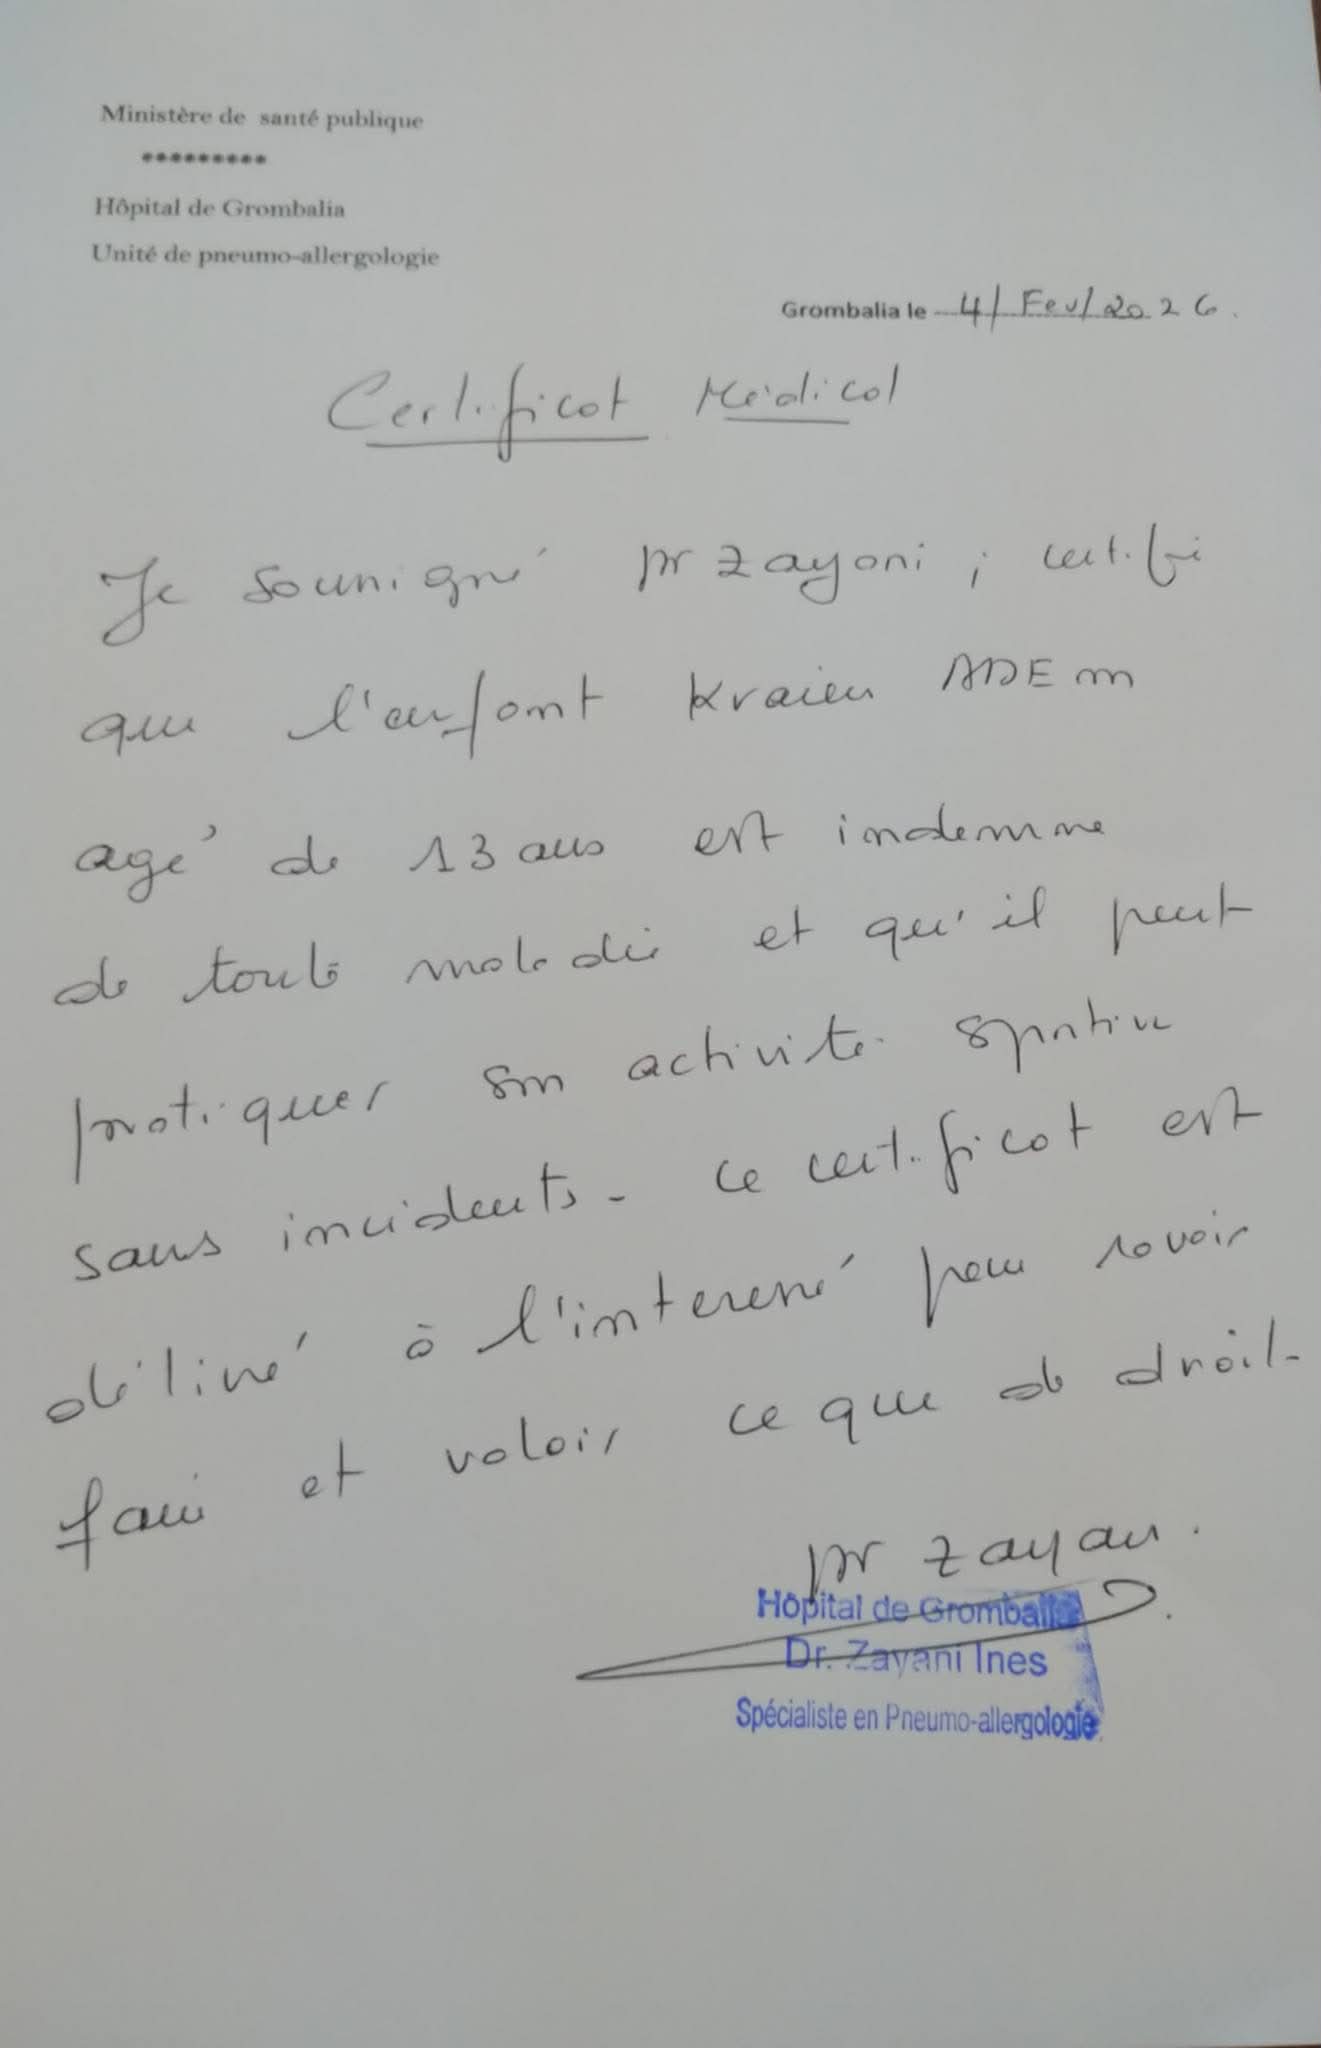 Ministère de santé publique
*********
Hôpital de Grombalia
Unité de pneumo-allergologie
Grombalia le 4/Fev/2026.
Certificat Médical
Je soussigné Dr Zayani, certifie
que l'enfant Kraiem ADEM
agé de 13 ans est indemne
de toute maladie et qu'il peut
pratiquer son activité sportive
sans incidents. Ce certificat est
délivré à l'interessé pour
faire et valoir ce que de droit.
Dr Zayani.
Hôpital de Grombalia
Dr. Zayani Ines
Spécialiste en Pneumo-allergologie